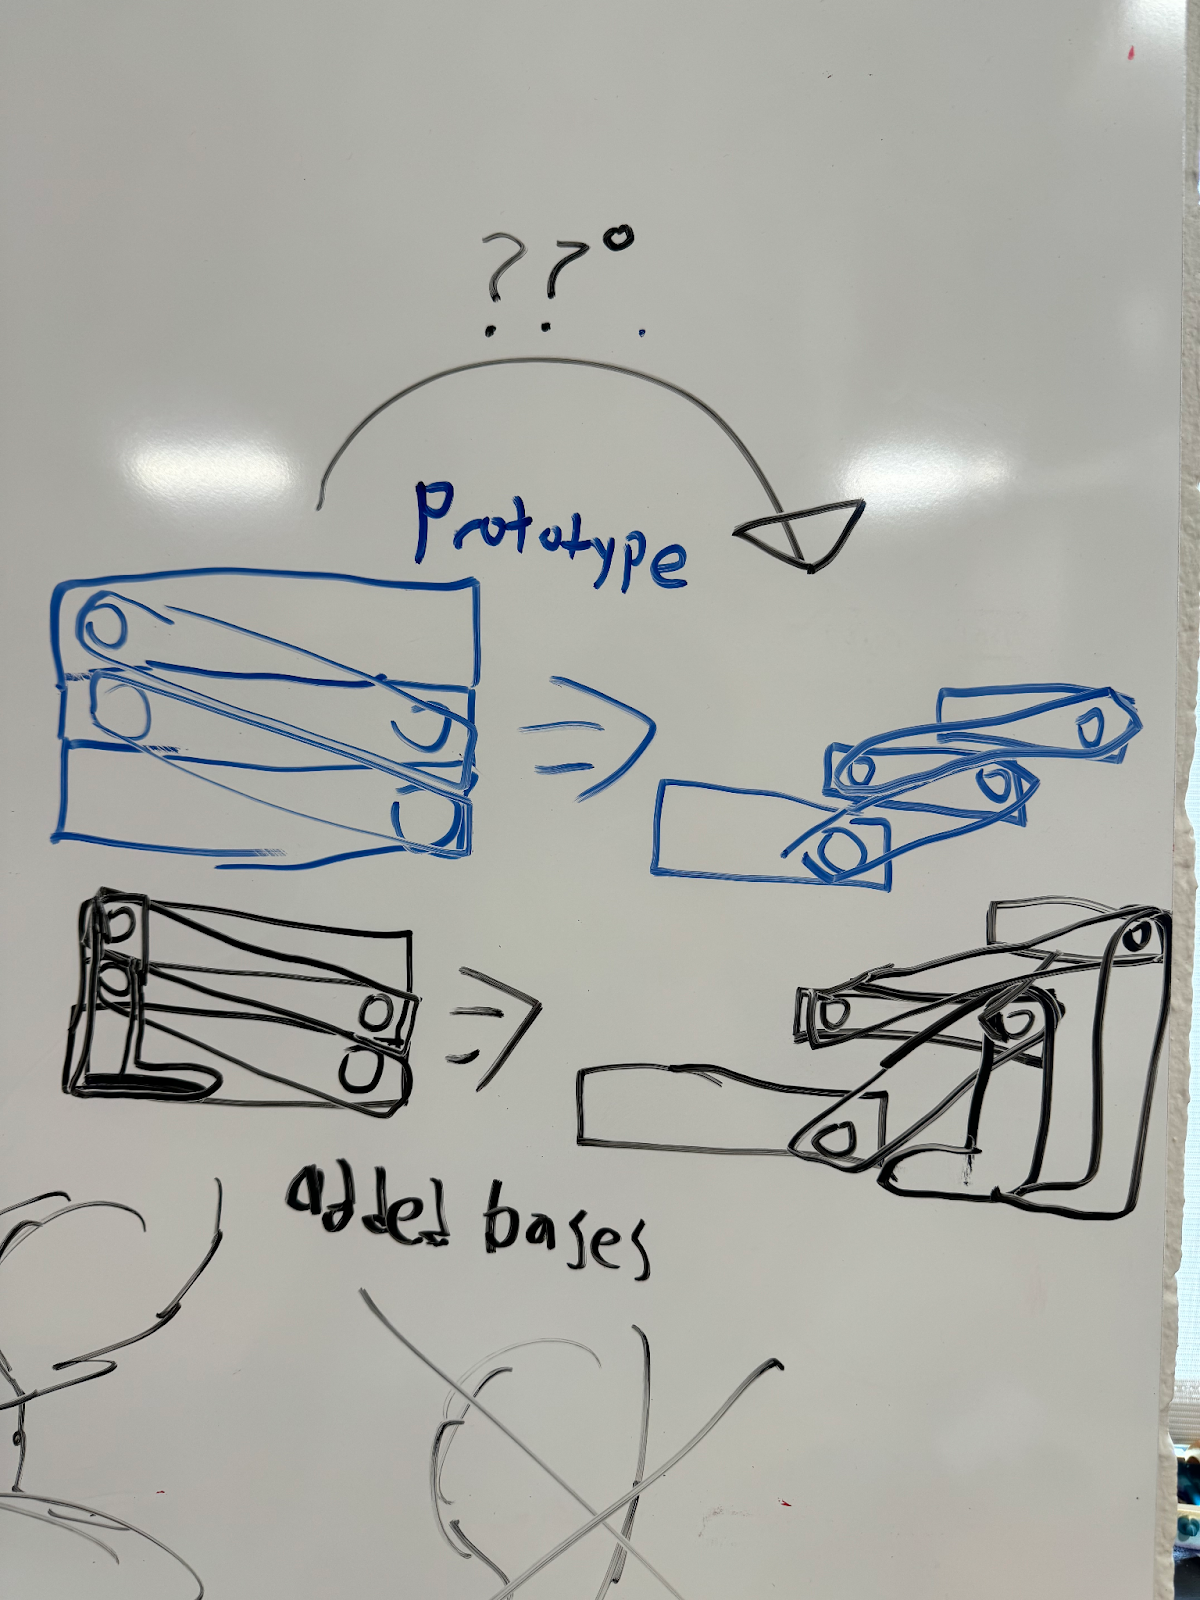 ??°
Prototype
added bases